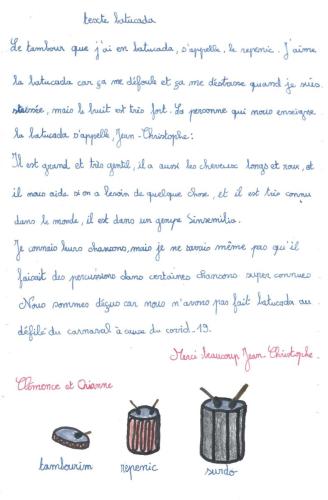 texte batucada
Le tambour que j'ai en batucada, s'appelle, le repenic. J'aime
la batucada car ça me défoule et ça me déstresse quand je suis
stressée, mais le bruit est très fort. La personne qui nous enseigne
la batucada s'appelle, Jean-Christophe:
Il est grand et très gentil, il a aussi les cheveux longs et roux, et
il nous aide si on a besoin de quelque chose, et il est très connu
dans le monde, il est dans un groupe Sinsemilia.
Je connais leurs chansons, mais je ne savais même pas qu'il
faisait des percussions dans certaines chansons super connues.
Nous sommes déçus car nous n'avons pas fait batucada au
défilé du carnaval à cause du covid-19.
Merci beaucoup Jean-Christophe.
Clémence et
tambourim repenic surdo